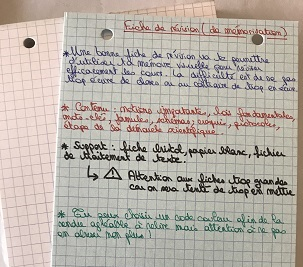 Fiche de révision (de mémorisation)
* Une bonne fiche de révision va te permettre
d'utiliser ta mémoire visuelle pour réviser
efficacement les cours. La difficulté est de ne pas
trop écrire de choses ou au contraire de trop en écrire.
* Contenu : notions importantes, lois fondamentales,
mots-clés, formules, schémas, croquis, protocoles,
étape de la démarche scientifique.
* Support : fiche bristol, papier blanc, fichier
de traitement de texte.
↳ ⚠ Attention aux fiches trop grandes
car on sera tenté de trop en mettre
* Tu peux choisir un code couleur afin de la
rendre agréable à relire mais attention à ne pas
en abuser non plus !